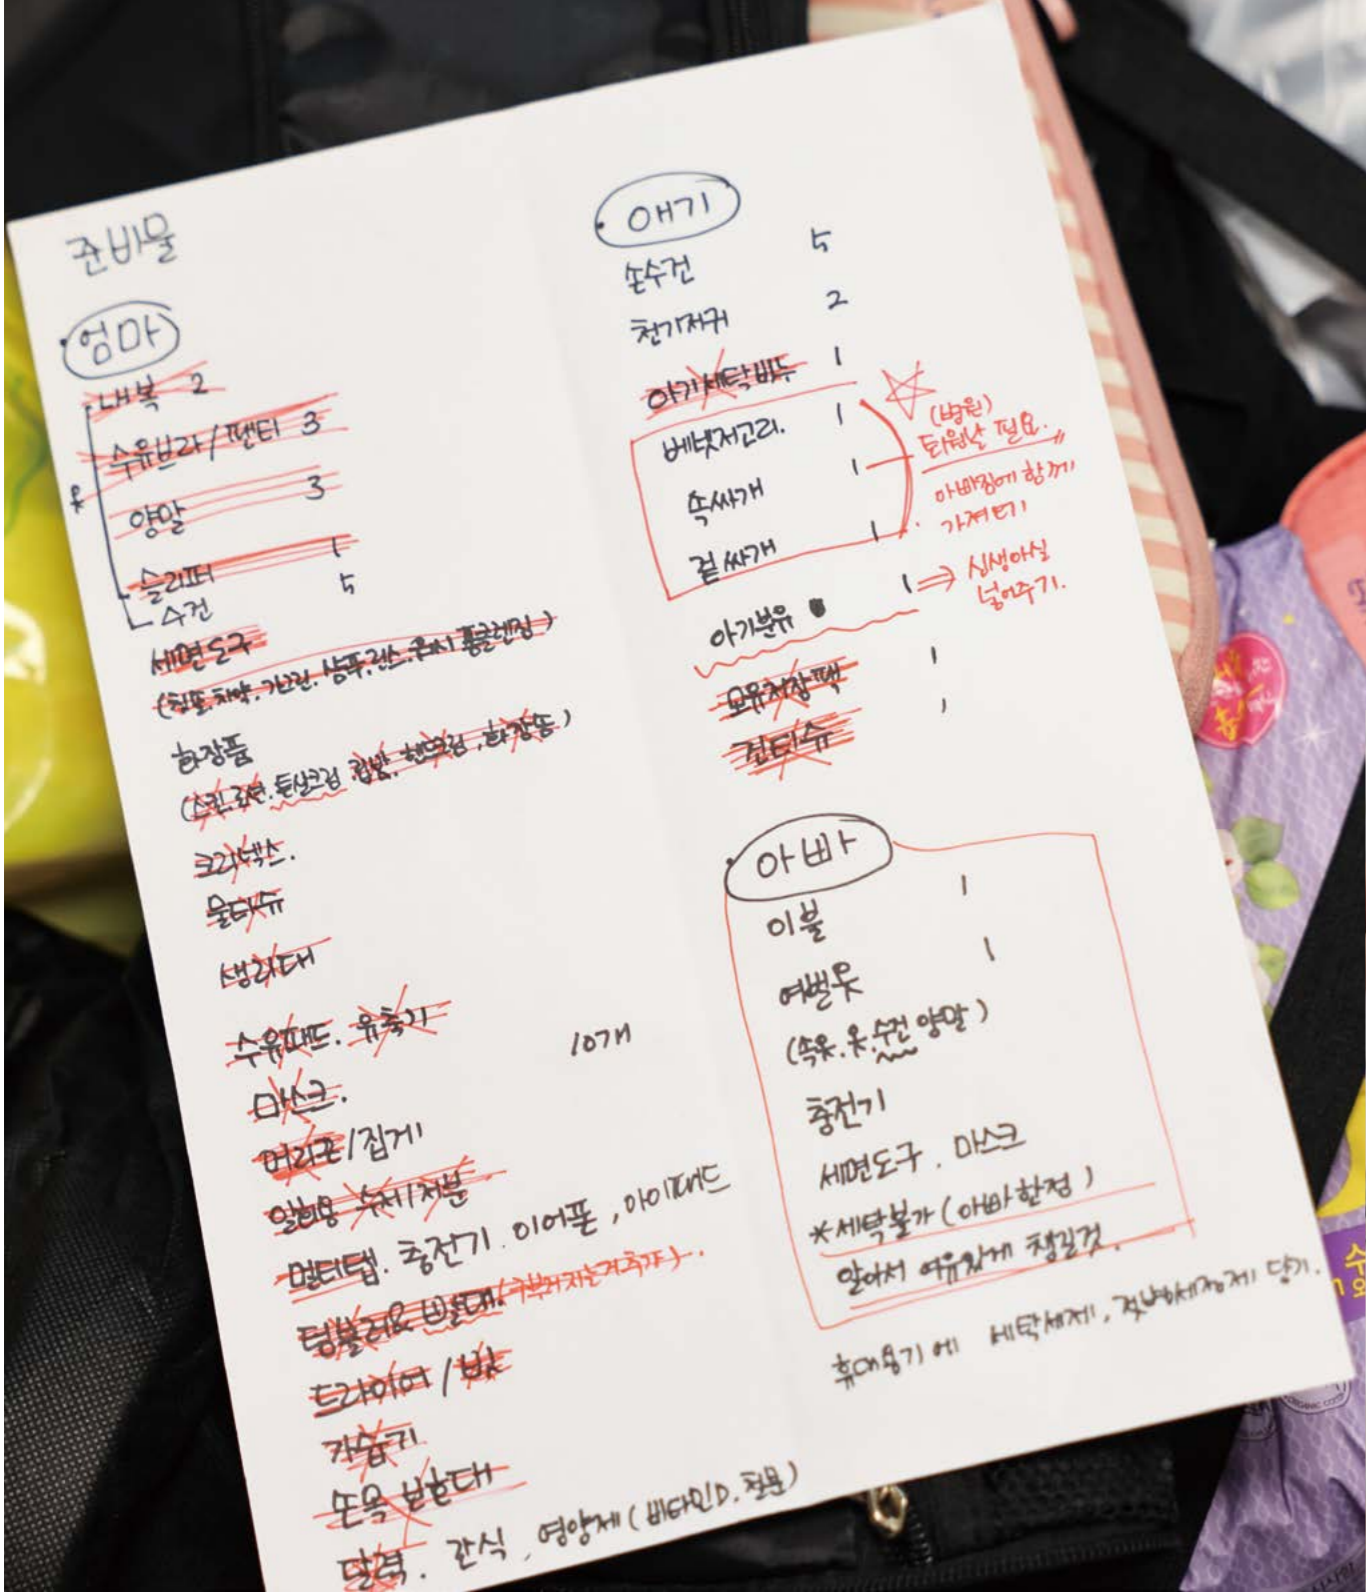 준비물
엄마
내복 2
수유브라/팬티 3
양말 3
슬리퍼 1
수건 5
세면도구
(칫솔.치약.가그린.샴푸.린스.폼클렌징)
화장품
(스킨.로션.튼살크림.립밤.핸드크림,화장솜)
크리넥스.
물티슈
생리대
수유패드.유축기
마스크. 10개
머리끈/집게
일회용 수저/접분
멀티탭.충전기.이어폰,아이패드
텀블러&빨대.(구부러지는거 추가).
드라이어/빗
가습기
손목 보호대
달력.간식,영양제(비타민D.철분)
애기
손수건 5
천기저귀 2
아기세탁비누 1
베넷저고리. 1
속싸개 1
겉싸개 1
(병원)
퇴원날 필요.
아빠짐에 함께
가져오기
아기분유 1 ⇒ 신생아실
넣어주기.
모유저장팩 1
건티슈 1
아빠
이불 1
여벌옷 1
(속옷.옷.수건 양말)
충전기
세면도구.마스크
*세탁불가(아빠한정)
알아서 여유있게 챙길것.
휴대용기에 세탁세제,젖병세정제 담기.